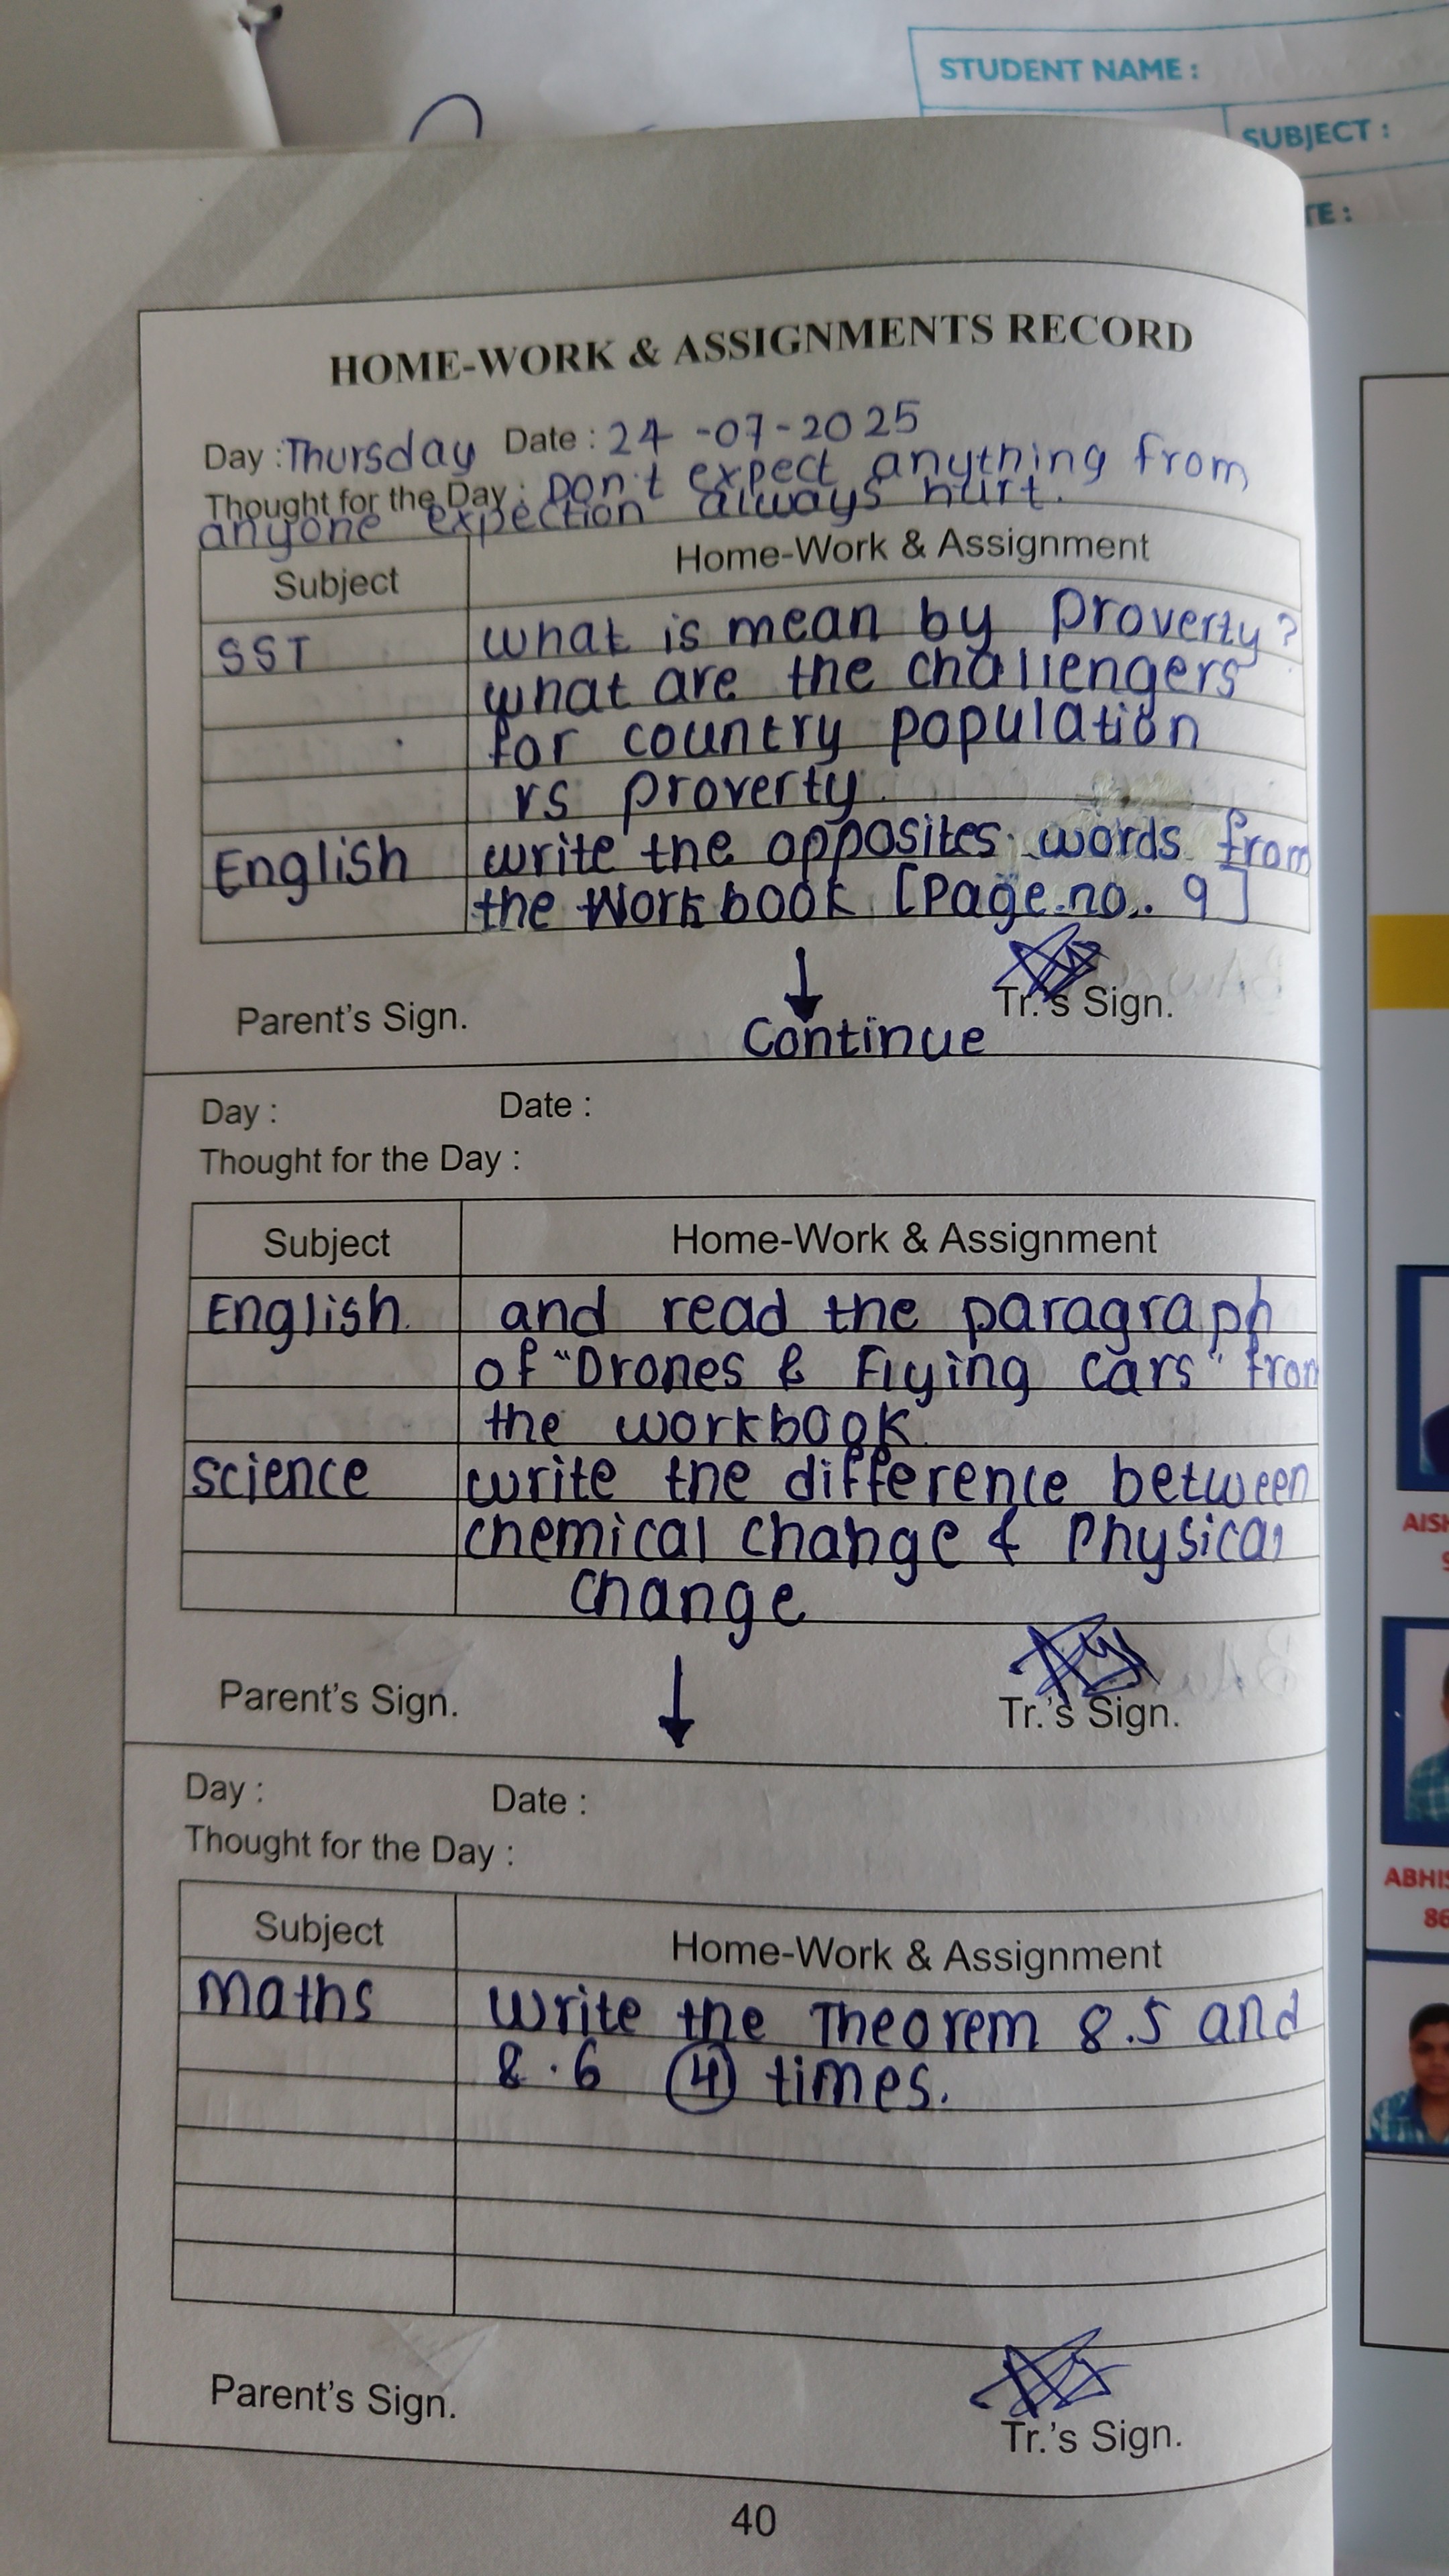 STUDENT NAME :
SUBJECT :
TE :
HOME-WORK & ASSIGNMENTS RECORD
Day : Thursday Date : 24-07-2025
Thought for the Day : Don't expect anything from
anyone expection always hurt.
Subject Home-Work & Assignment
SST what is mean by Proverty?
what are the challengers
for country population
vs proverty.
English write the opposites words from
the Workbook [Page.no. 9]
Parent's Sign. Tr.'s Sign.
Continue
Day : Date :
Thought for the Day :
Subject Home-Work & Assignment
English. and read the paragraph
of "Drones & Flying cars" from
the workbook.
science write the difference between
chemical change & Physical
change
Parent's Sign. Tr.'s Sign.
Day : Date :
Thought for the Day :
Subject Home-Work & Assignment
Maths Write the Theorem 8.5 and
8.6 4 times.
Parent's Sign. Tr.'s Sign.
40
AISH
ABHIS
86